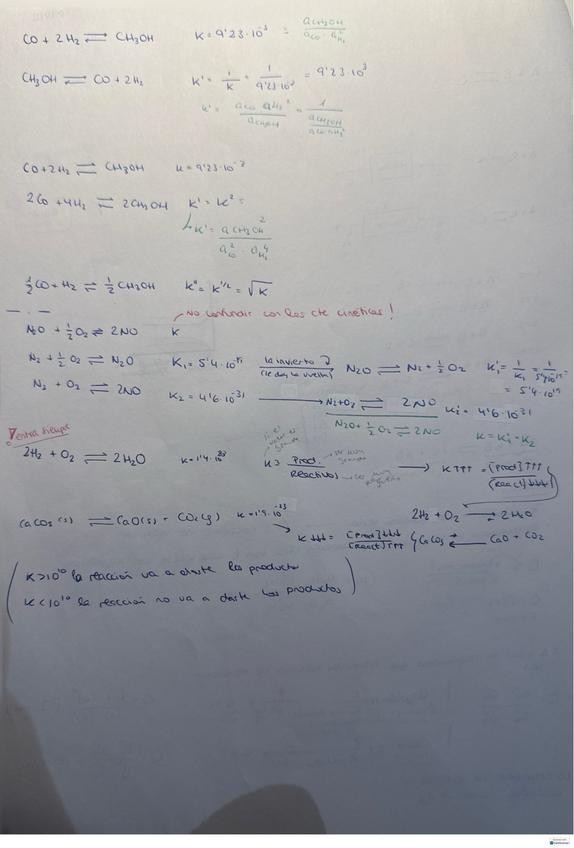 CO + 2H₂ ⇌ CH₃OH K = 9'23·10⁻³ = aCH₃OH / aCO · aH₂²
CH₃OH ⇌ CO + 2H₂ K' = 1/K = 1/9'23·10⁻³ = 9'23·10³
K' = aCO aH₂² / aCH₃OH = 1 / (aCH₃OH / aCO·aH₂²)
CO + 2H₂ ⇌ CH₃OH K = 9'23·10⁻³
2CO + 4H₂ ⇌ 2CH₃OH K' = K² =
↳ K' = aCH₃OH² / aCO² · aH₂⁴
½CO + H₂ ⇌ ½CH₃OH K'' = K^1/2 = √K
No confundir con las cte cinéticas!
N₂O + ½O₂ ⇌ 2NO K
N₂ + ½O₂ ⇌ N₂O K₁ = 5'4·10⁻¹⁹ la invierto (le doy la vuelta) N₂O ⇌ N₂ + ½O₂ K₁' = 1/K₁ = 1/5'4·10⁻¹⁹
= 5'4·10¹⁹
N₂ + O₂ ⇌ 2NO K₂ = 4'6·10⁻³¹ → N₂ + O₂ ⇌ 2NO K₂ = 4'6·10⁻³¹
N₂O + ½O₂ ⇌ 2NO K = K₁' · K₂
entra siempre
2H₂ + O₂ ⇌ 2H₂O K = Prod. / Reactivos → K↑↑↑ = [Prod]↑↑↑ / [React]↓↓↓
2H₂ + O₂ → 2H₂O
CaCO₃(s) ⇌ CaO(s) + CO₂(g) K = 1'9·10⁻²³
K↓↓↓ = [Prod]↓↓↓ / [React]↑↑↑ CaCO₃ ⇌ CaO + CO₂
K > 10¹⁰ la reacción va a darte los productos
K < 10¹⁰ la reacción no va a darte los productos